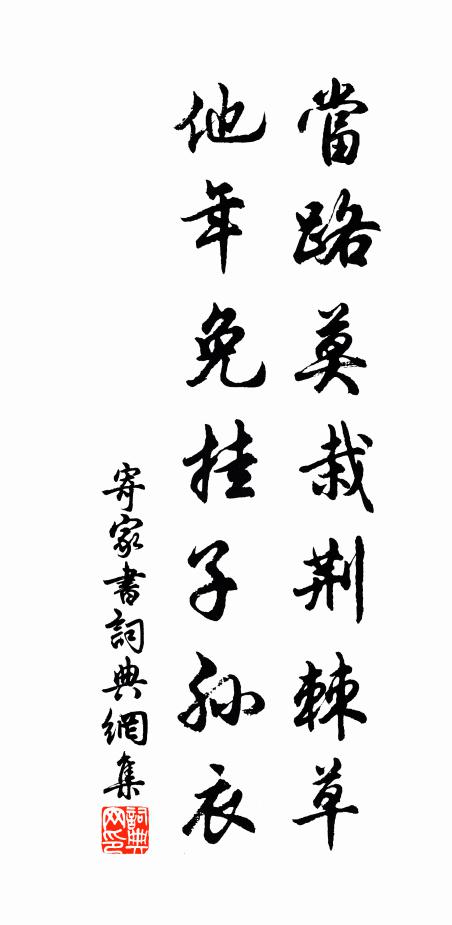 當路莫栽荆棘草
他年免挂子孫衣
寄家書詞典網集
詞典網印